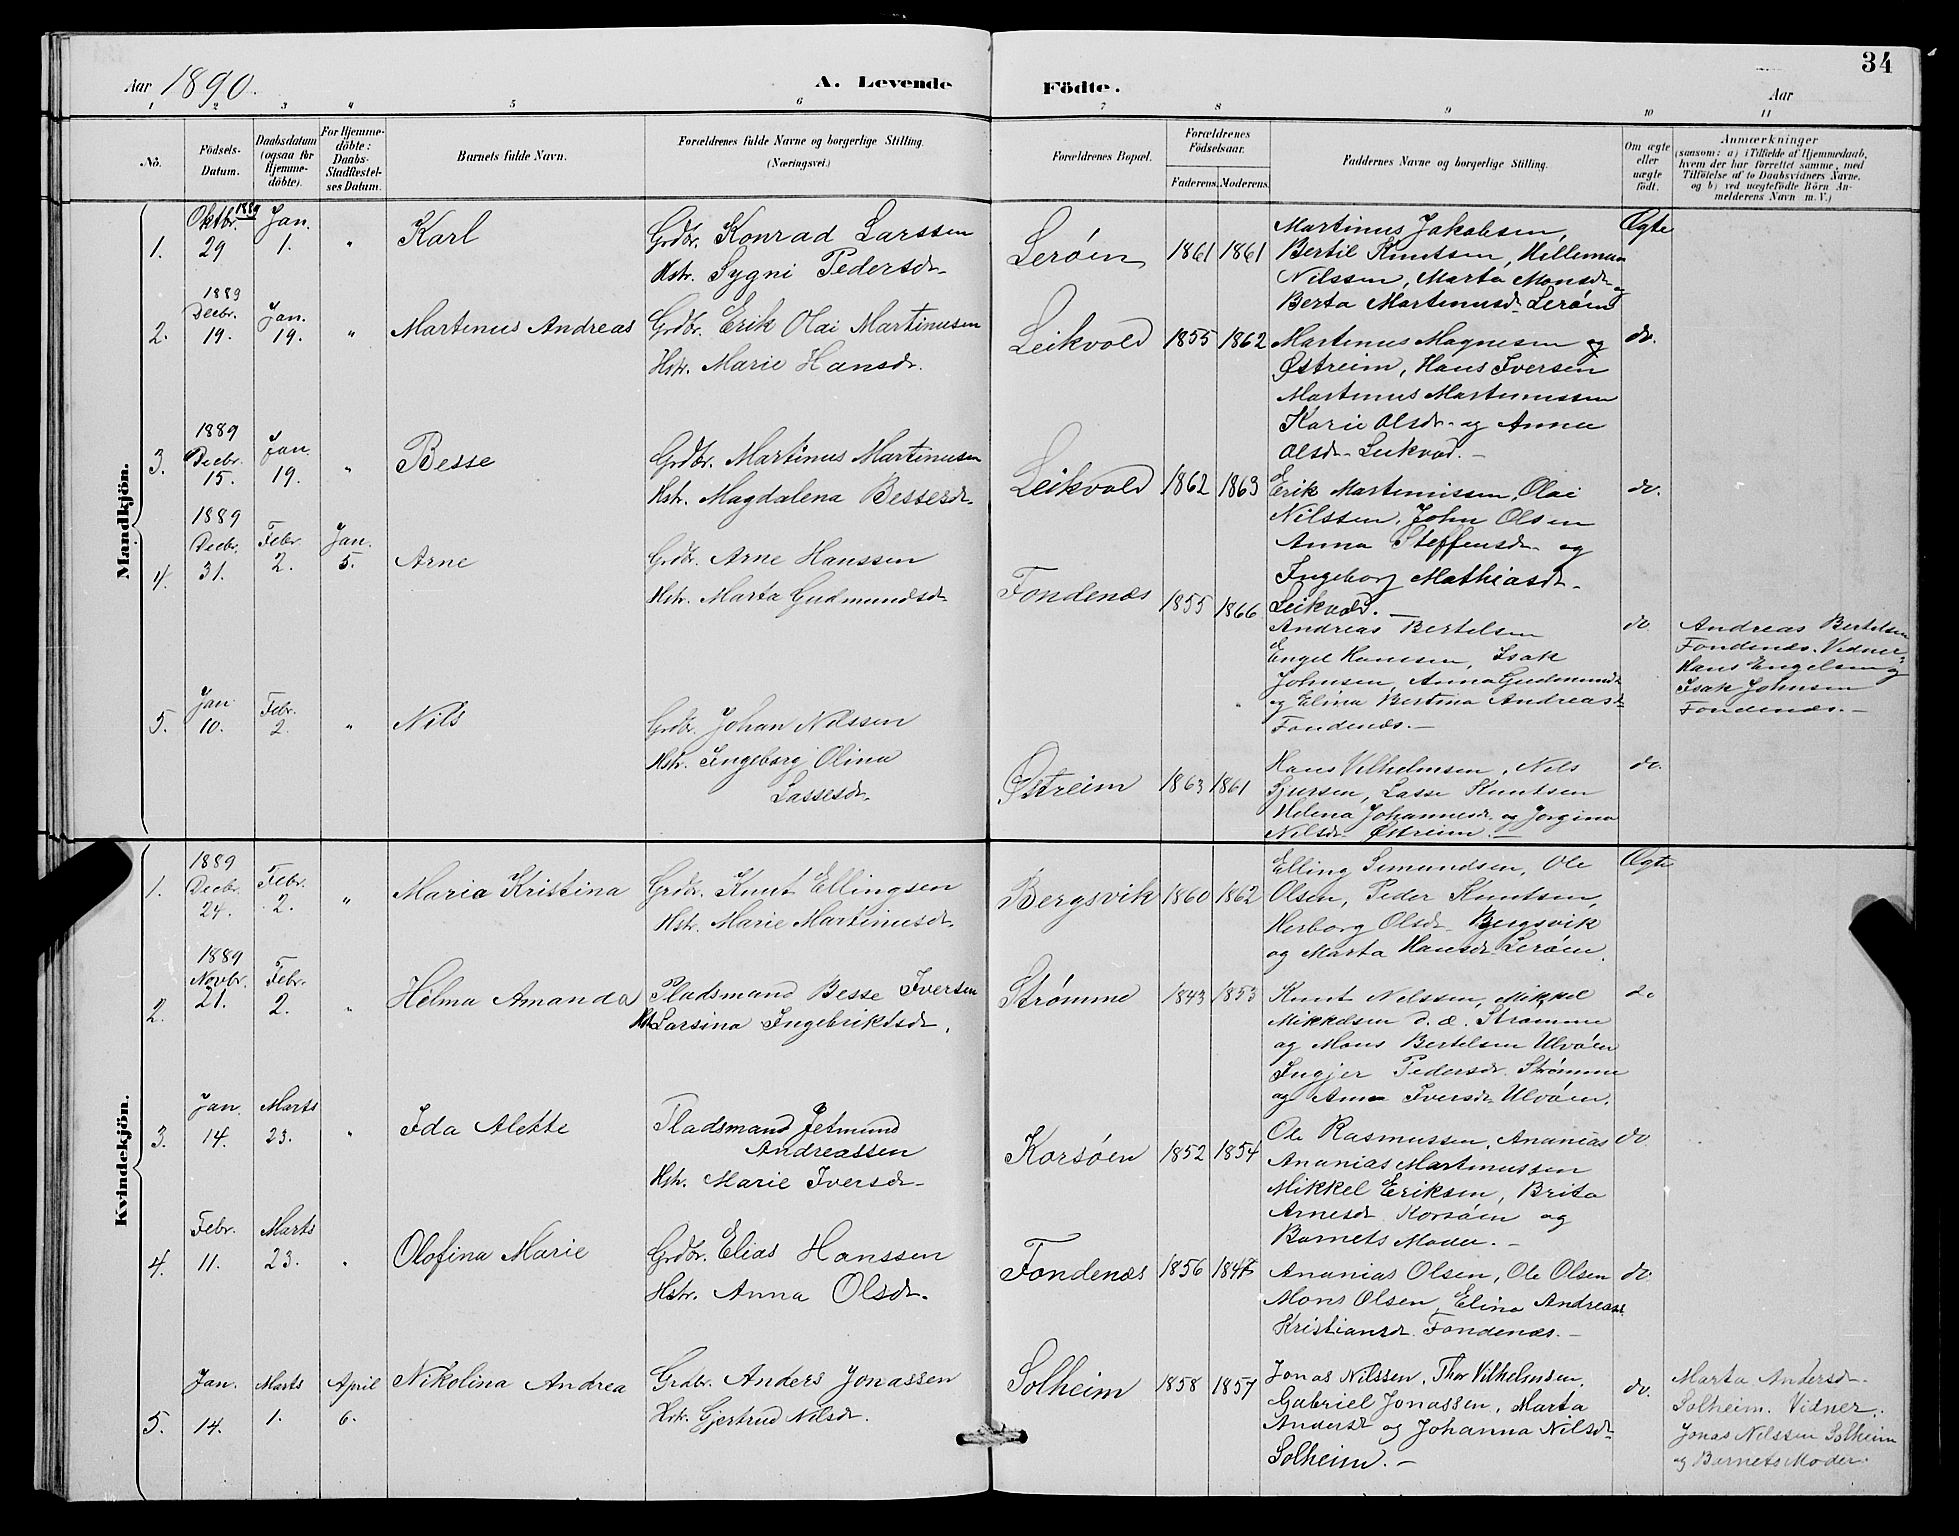 34
Aar 1890. A. Levende Födte. Aar
1 2 3 4 5 6 7 8 9 10 11
No. Födsels-Datum. Daabsdatum (ogsaa for Hjemmedöbte). For Hjemmedöbte: Daabs-Stadfæstelses Datum. Barnets fulde Navn. Forældrenes fulde Navne og borgerlige Stilling. (Næringsvei.) Forældrenes Bopæl. Forældrenes Födselsaar. Faderens. Moderens. Faddernes Navne og borgerlige Stilling. Om ægte eller uægte födt. Anmærkninger (saasom: a) i Tilfælde af Hjemmedaab, hvem der har forrettet samme, med Tilföielse af to Daabsvidners Navne, og b) ved uægtefödte Börn Anmelderens Navn m. V.)
Mandkjön.
1. Oktbr. 1889 29 Jan. 1. " Karl
Grdbr. Konrad Larssen
Hstr. Sygni Pedersdr.
Lerøen 1861 1861
Martinus Jakobsen,
Bertil Knutsen, Milleman
Nilssen, Marta Monsdr. og
Berta Martinusdr. Lerøen
Ægte
2. 1889 Decbr. 19. Jan. 19. " Martinus Andreas
Grdbr. Erik Olai Martinusen
Hstr. Marie Hansdr.
Leikvold 1855 1862
Martinus Magnesen og
Østreim, Hans Iversen
Martinus Martinussen
Karie Olsdr. og Anna
Olsdr. Leikvod. -
do.
3. 1889 Decbr. 15. Jan. 19. " Besse
Grdbr. Martinus Martinusen
Hstr. Magdalena Bessesdr.
Leikvold 1862 1863
Erik Martinissen, Olai
Nilssen, John Olsen
Anna Steffensdr. og
Ingeborg Mathiasdr.
Leikvold. -
do.
4. 1889 Decbr. 31. Febr. 2. Jan. 5. Arne
Grdbr. Arne Hanssen
Hstr. Marta Gudmundsdr.
Fondenæs 1855 1866
Andreas Bertelsen
Engel Hansen, Isak
Johnsen, Anna Gudmundsdr.
og Elina Bertina Andreasdr.
Fondenæs. -
do.
Andreas Bertelsen
Fondenæs. Vidner:
Hans Engelsen og
Isak Johnsen
Fondenæs. -
5. Jan. 10. Febr. 2. " Nils
Grdbr. Johan Nilssen
Hstr. Ingeborg Olina
Lassesdr.
Østreim 1863 1861
Hans Vilhelmsen, Nils
Sjursen, Lasse Knutsen
Helena Johannesdr. og Jorgina
Nilsdr. Østreim. -
do.
Kvindekjön.
1. 1889 Decbr. 24. Febr. 2. " Maria Kristina
Grdbr. Knut Ellingsen
Hstr. Marie Martinusdr.
Bergsvik 1860 1862
Elling Simundsen, Ole
Olsen, Peder Knutsen,
Herborg Olsdr. Bergsvik
og Marta Hansdr. Lerøen.
Ægte
2. 1889 Novbr. 21. Febr. 2. " Hilma Amanda
Pladsmand Besse Iversen
Hstr. Larsina Ingebriktsdr.
Strømme 1843 1853
Knut Nilssen, Mikkel
Mikkelsen d. æ. Strømme
og Mons Bertelsen Ulvøen
Ingjer Pedersdr. Strømme
og Anna Iversdr. Ulvøen.
do
3. Jan. 14. Marts 23. " Ida Alette
Pladsmand Jetmund
Andreassen
Hstr. Marie Iversdr.
Korsøen 1852 1854
Ole Rasmussen, Ananias
Ananias Martinussen
Mikkel Eriksen, Brita
Arnesdr. Korsøen og
Barnets Moder. -
do
4. Febr. 11. Marts 23. " Olofina Marie
Grdbr. Elias Hanssen
Hstr. Anna Olsdr.
Fondenæs 1856
Ananias Olsen, Ole Olsen
Mons Olsen, Elina Andreasdr.
Kristiansdr. Fondenæs. -
do.
5. Jan. 14. Marts 1. April 6. Nikolina Andrea
Grdbr. Anders Jonassen
Hstr. Gjertrud Nilsdr.
Solheim 1858 1857
Jonas Nilssen, Thor Vilhelmsen,
Gabriel Jonassen, Marta
Andersdr. og Johanna Nilsdr.
Solheim. -
do.
Marta Andersdr.
Solheim. Vidner:
Jonas Nilssen Solheim
og Barnets Moder.